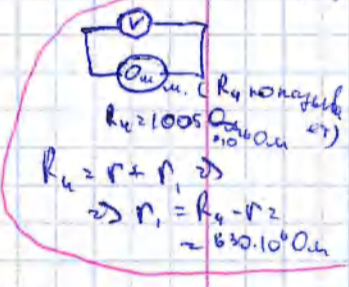 V
Ом м. ( R₄ показыва
ет)
R₄ = 1005 Ом
·10⁶ Ом
R₄ = r + r₁ ⇒
⇒ r₁ = R₄ - r =
= 630·10⁶ Ом